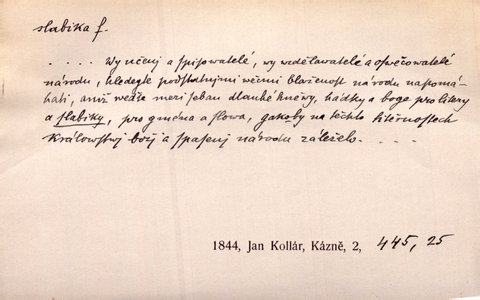 slabika f.
. . . . Wy učenj a spisowatelé, wy wzdělawatelé a oswěcowatelé
národu, hledegte podstatnými wěcmi blaženost národu napomá-
hati, aniž weďte mezi sebau dlauhé hněwy, hádky a boge pro litery
a slabiky, pro gména a slowa, gakoby na těchto liternostech
Králowstwj božj a spasenj národu záleželo. . . . .
1844, Jan Kollár, Kázně, 2, 445, 25